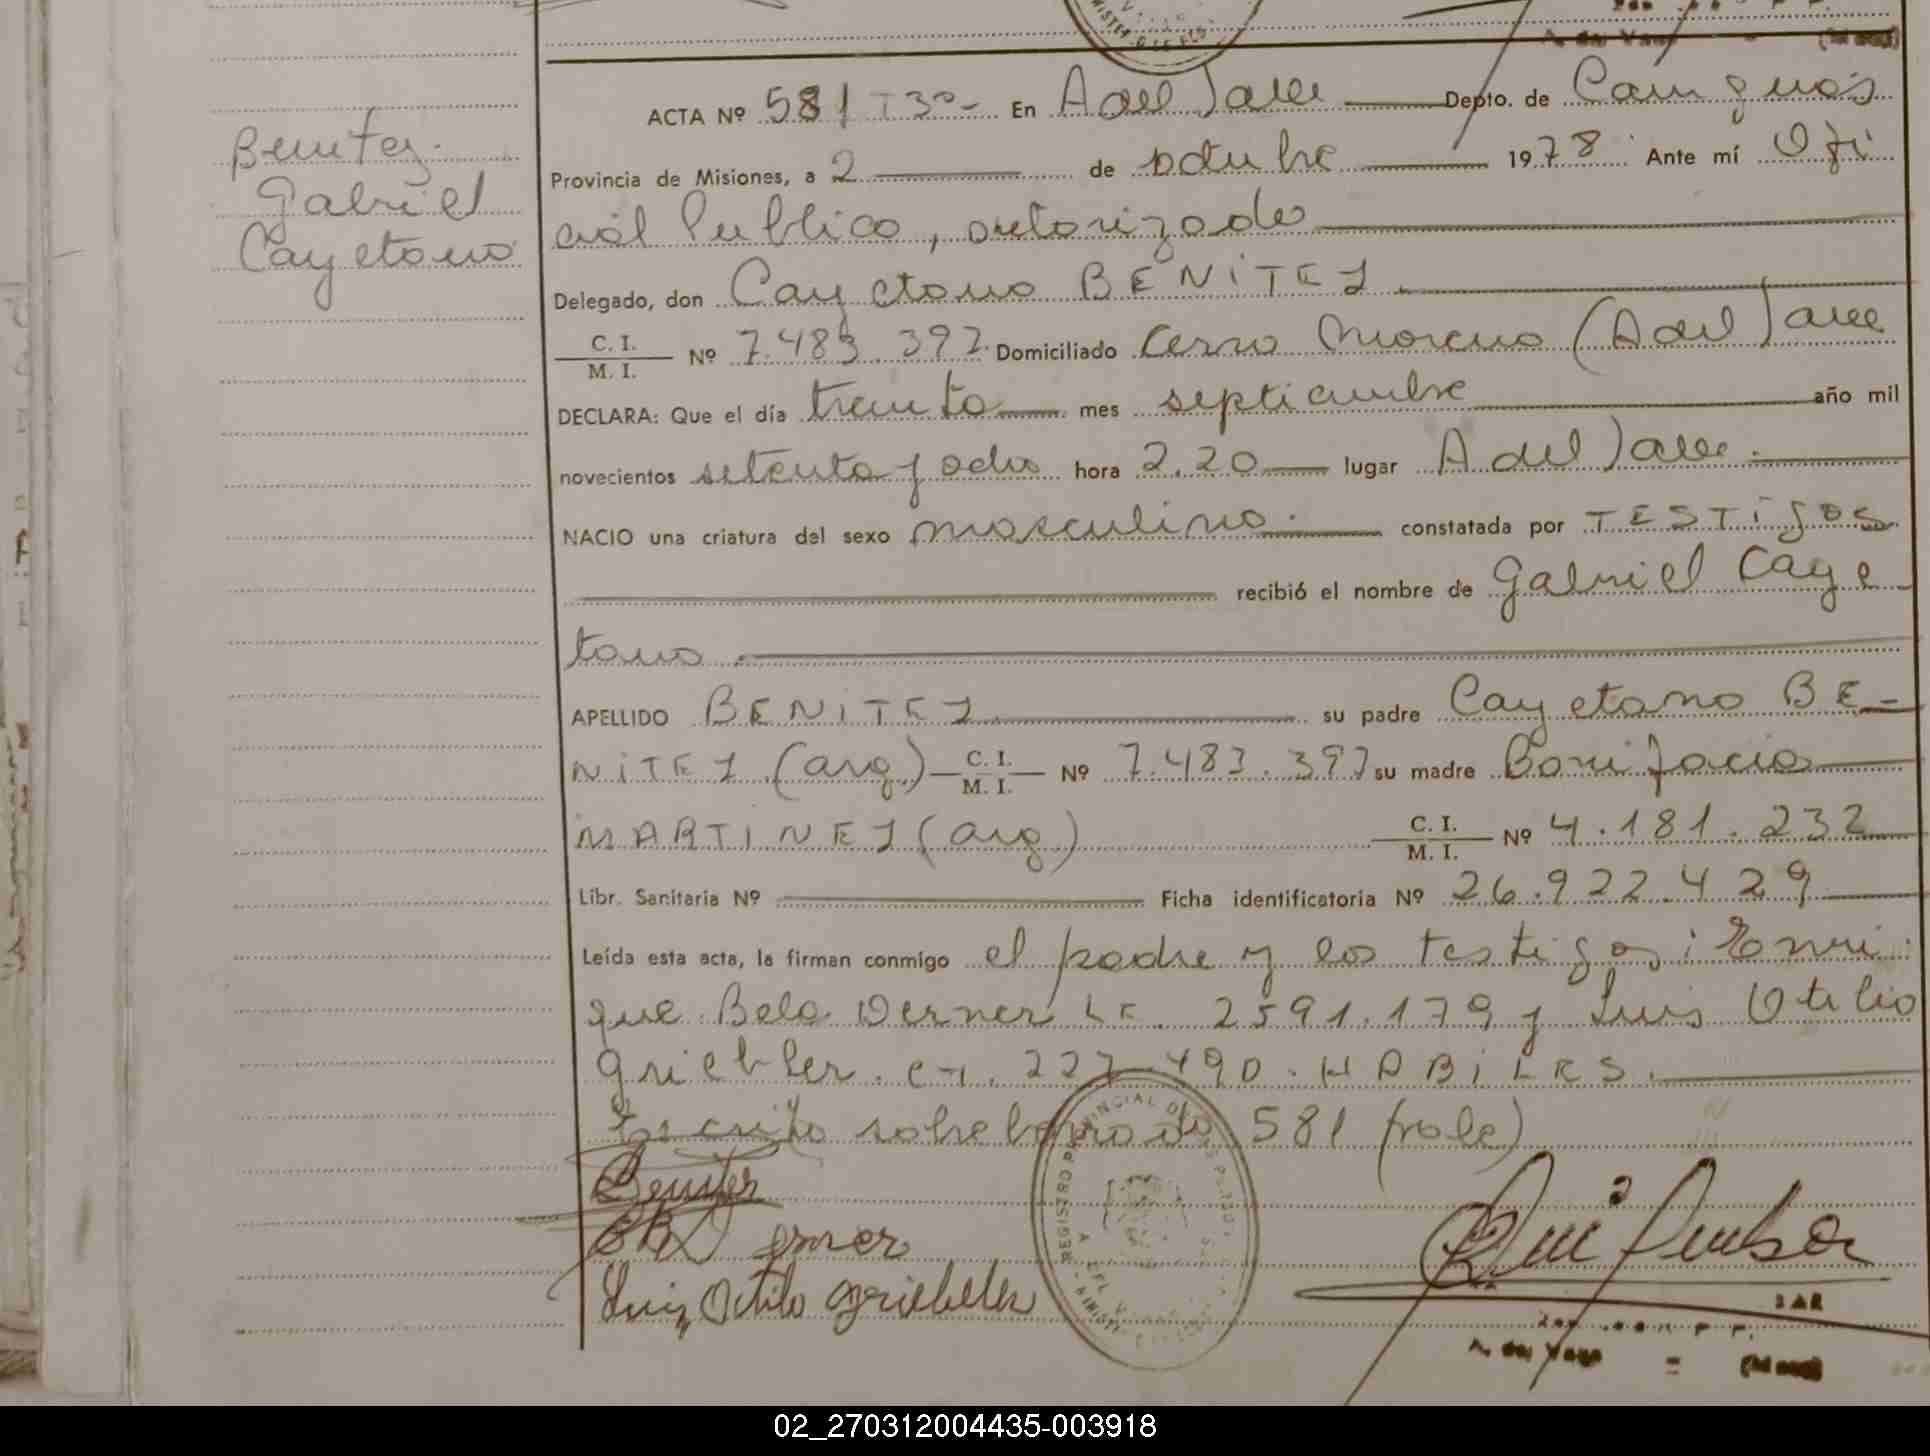 Benitez.
Gabriel
Cayetano
ACTA Nº 581 T3º- En A del Valle Depto. de Cainguás
Provincia de Misiones, a 2 de octubre 1978 Ante mí Ofi
cial Publico, autorizado
Delegado, don Cayetano BENITEZ
C. I. / M. I. Nº 7.483.397 Domiciliado Cerro Moreno (A del Valle
DECLARA: Que el día treinta mes septiembre año mil
novecientos setenta y ocho hora 2.20 lugar A del Valle.
NACIO una criatura del sexo masculino. constatada por TESTigos
recibió el nombre de Gabriel Caye
tano
APELLIDO BENITEZ su padre Cayetano BE-
NITEZ (arg) C. I. / M. I. Nº 7.483.397 su madre Bonifacia
MARTINEZ (arg) C. I. / M. I. Nº 4.181.232
Libr. Sanitaria Nº Ficha identificatoria Nº 26.922.429
Leída esta acta, la firman conmigo el padre y los testigos: Enri
que Bela Derner LE. 2591.179 y Luis Otilio
Griebler. CI. 227.490. HABILES.
Escrito sobre borrado 581 (vale)
Benitez
Derner
Luiz Otilo Griebeler
REGISTRO PROVINCIAL DE LAS PERSONAS
A. del Valle (Mnes)
02_270312004435-003918